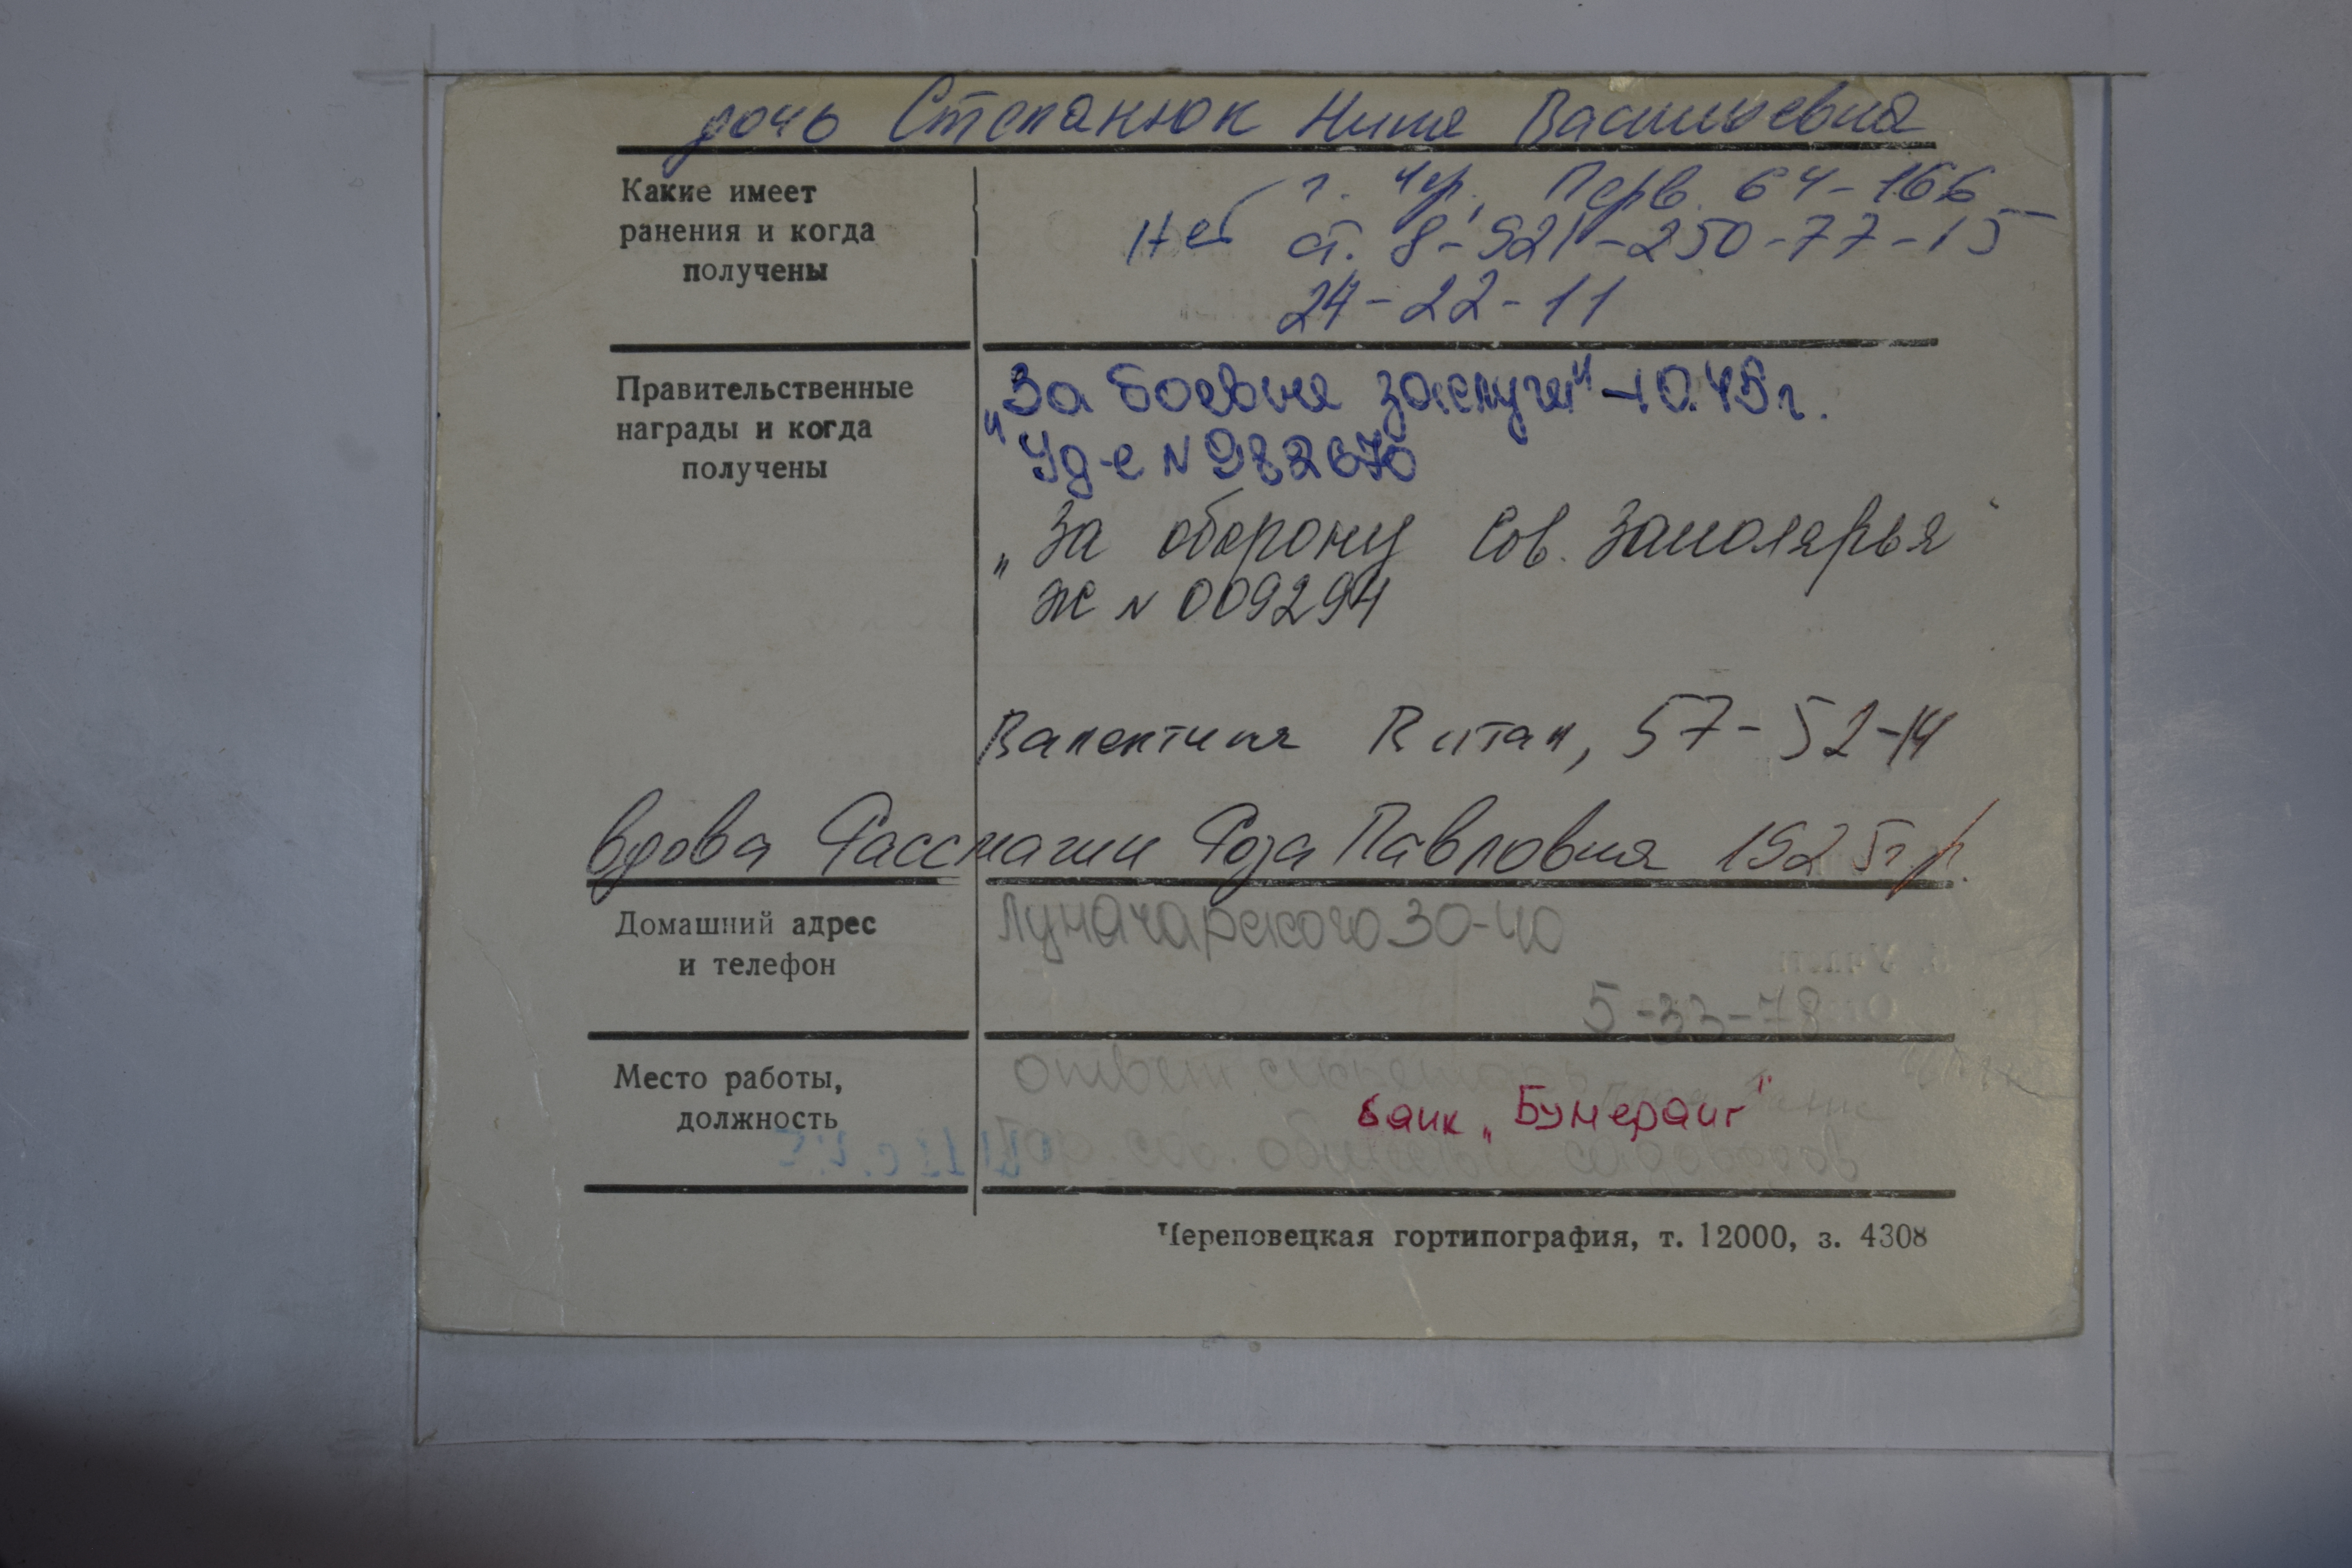 дочь Степанюк Нина Васильевна
Какие имеет
ранения и когда
получены
г. Чер, Перв. 64-166
Нет ст. 8-921-250-77-15
24-22-11
Правительственные
награды и когда
получены
„За боевые заслуги" -10.45г.
Уд-е N 982670
„За оборону Сов. Заполярья"
Ж N 009294
Валентина Витал, 57-52-14
вдова Рассмагин Роза Павловна 1925 г.р.
Домашний адрес
и телефон
Луначарского 30-40
5-33-78
Место работы,
должность
ответ
банк „Бумеранг"
Гор. общества садоводов
Череповецкая гортипография, т. 12000, з. 4308